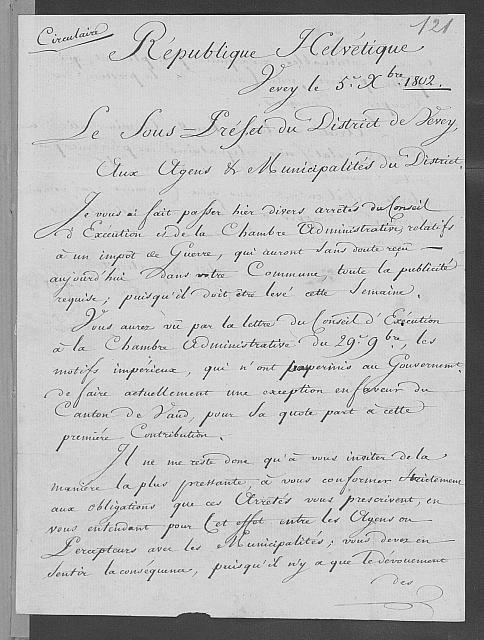 121
Circulaire
République Helvétique
Vevey le 5.e Xbre 1802.
Le Sous-Préfet du District de Vevey,
Aux Agens & Municipalités du District.
Je vous ai fait passer hier divers arretés du Conseil
d'Exécution et de la Chambre Administrative, relatifs
à un impot de Guerre, qui auront sans doute reçu —
aujourd'hui dans votre Commune, toute la publicité
requise; puisqu'il doit être levé cette Semaine.
Vous aurez vû par la lettre du Conseil d'Exécution
à la Chambre Administrative du 29.e 9bre, les
motifs impérieux, qui n'ont pas permis au Gouvernemt.
de faire actuellement une exception en faveur du
Canton de Vaud, pour sa quote part à cette
premiére Contribution.
Il ne me reste donc qu'à vous inviter de la
maniére la plus pressante, à vous conformer strictement
aux obligations que ces Arretés vous prescrivent, en
vous entendant pour cet effet entre les Agens ou
Percepteurs avec les Municipalités; vous devez en
sentir la conséquence, puisqu'il n'y a que le dévouement
des